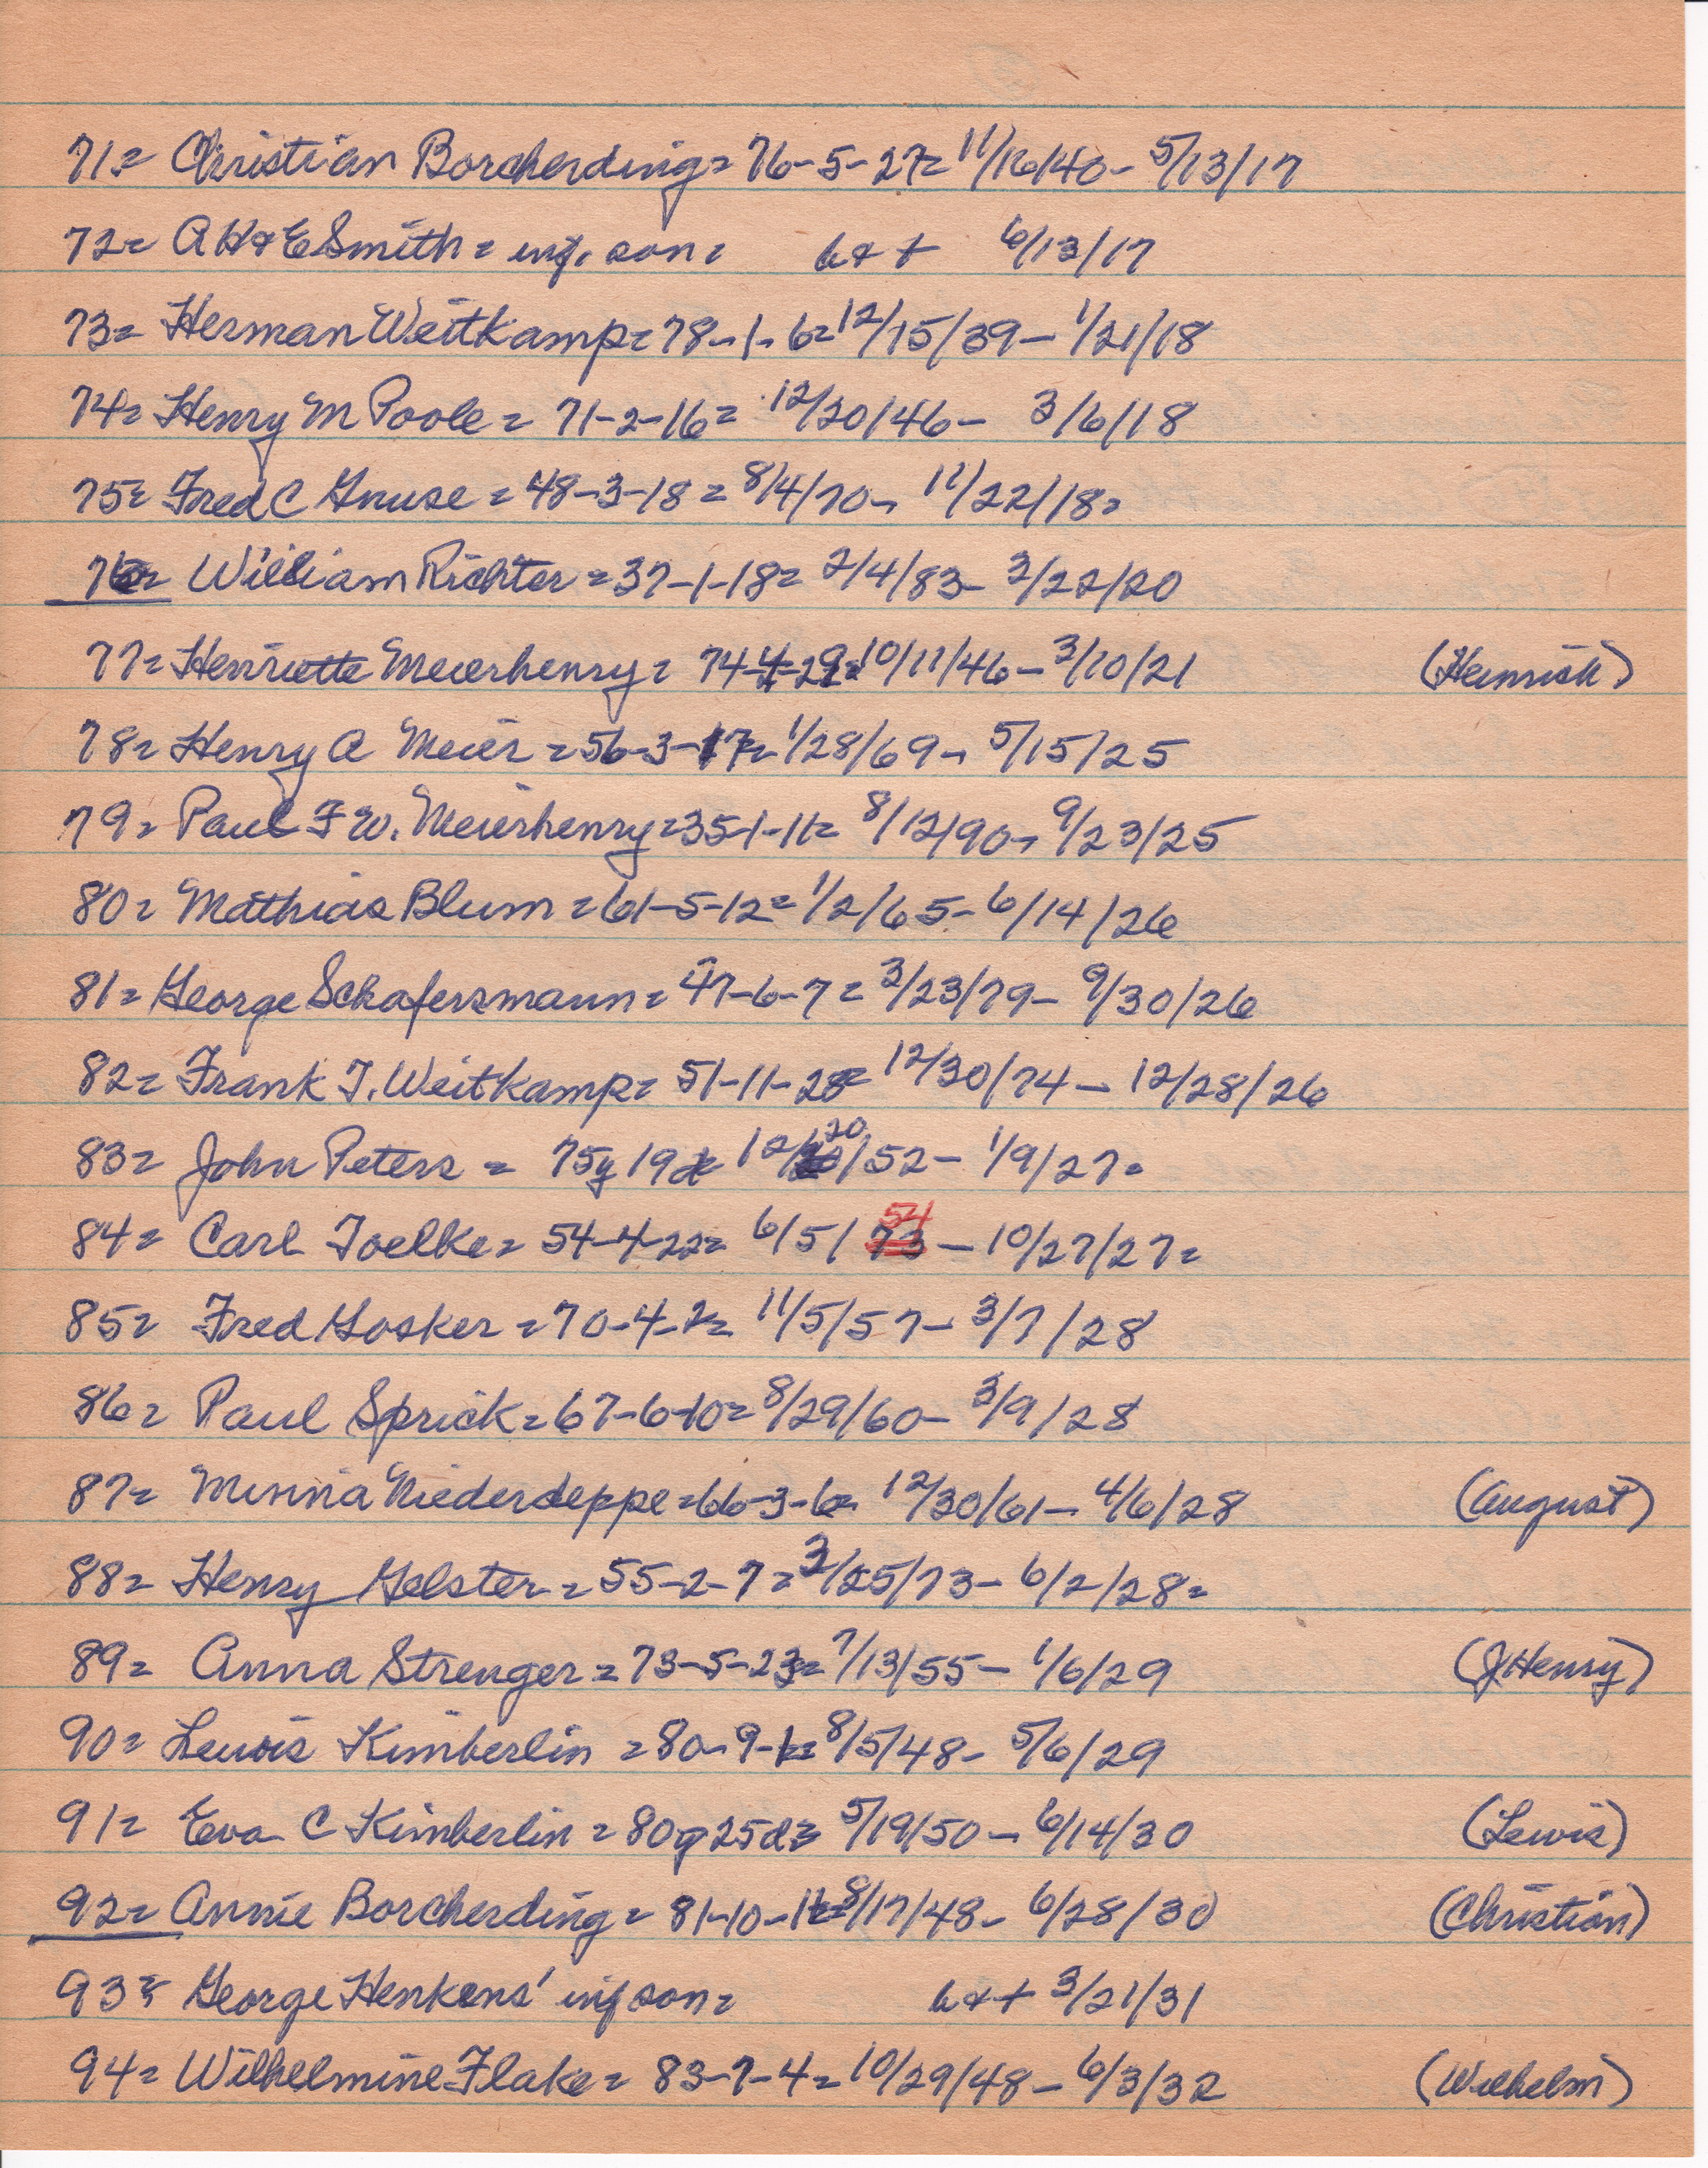 71= Christian Borcherding= 76-5-27= 11/16/40- 5/13/17
72= A H & E Smith= inf. son= b & + 6/13/17
73= Herman Weitkamp= 78-1-6= 12/15/39- 1/21/18
74= Henry M Poole= 71-2-16= 12/20/46- 3/6/18
75= Fred C Gnuse= 48-3-18= 8/4/70- 11/22/18=
76= William Richter= 37-1-18= 2/4/83- 3/22/20
77= Henriette Meierhenry= 74-4-29= 10/11/46- 3/10/21 (Heinrich)
78= Henry A Meier= 56-3-17= 1/28/69- 5/15/25
79= Paul F W. Meierhenry= 35-1-11= 8/12/90- 9/23/25
80= Mathias Blum= 61-5-12= 1/2/65- 6/14/26
81= George Schafersmann= 47-6-7= 3/23/79- 9/30/26
82= Frank J. Weitkamp= 51-11-28= 12/30/74- 12/28/26
83= John Peters= 75y 19d= 12/20/52- 1/9/27=
84= Carl Toelke= 54-4-22= 6/5/73 54 - 10/27/27=
85= Fred Gosker= 70-4-2= 11/5/57- 3/7/28
86= Paul Sprick= 67-6-10= 8/29/60- 3/9/28
87= Minna Niederdeppe= 66-3-6= 12/30/61- 4/6/28 (August)
88= Henry Gelster= 55-2-7= 3/25/73- 6/2/28=
89= Anna Strenger= 73-5-23= 7/13/55- 1/6/29 (J Henry)
90= Lewis Kimberlin= 80-9-1= 8/5/48- 5/6/29
91= Eva C Kimberlin= 80y 25d= 5/19/50- 6/14/30 (Lewis)
92= Annie Borcherding= 81-10-11= 8/17/48- 6/28/30 (Christian)
93= George Henkens' inf son= b & + 3/21/31
94= Wilhelmine Flake= 83-7-4= 10/29/48- 6/3/32 (Wilhelm)